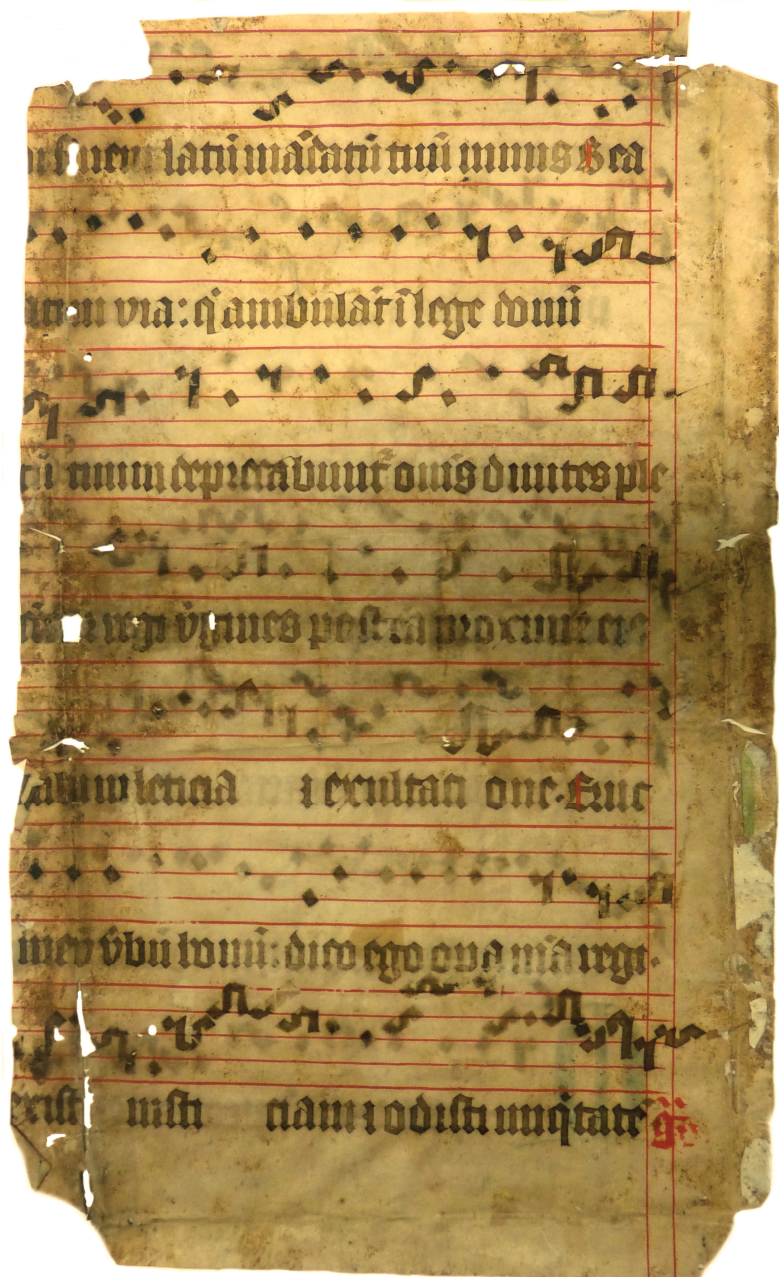 latū mādatū tuū nimis Bea
via: q̄ ambulāt ī lege domī
tuum deprecabunt᷑ om̄s diuites ple
regi v̄gines post eā proxime ei᷒
leticia ⁊ exultati one. Eruc
meū v̄bū bonū: dico ego opa mēa regi.
iusti ciam ⁊ odisti iniq̄tatē